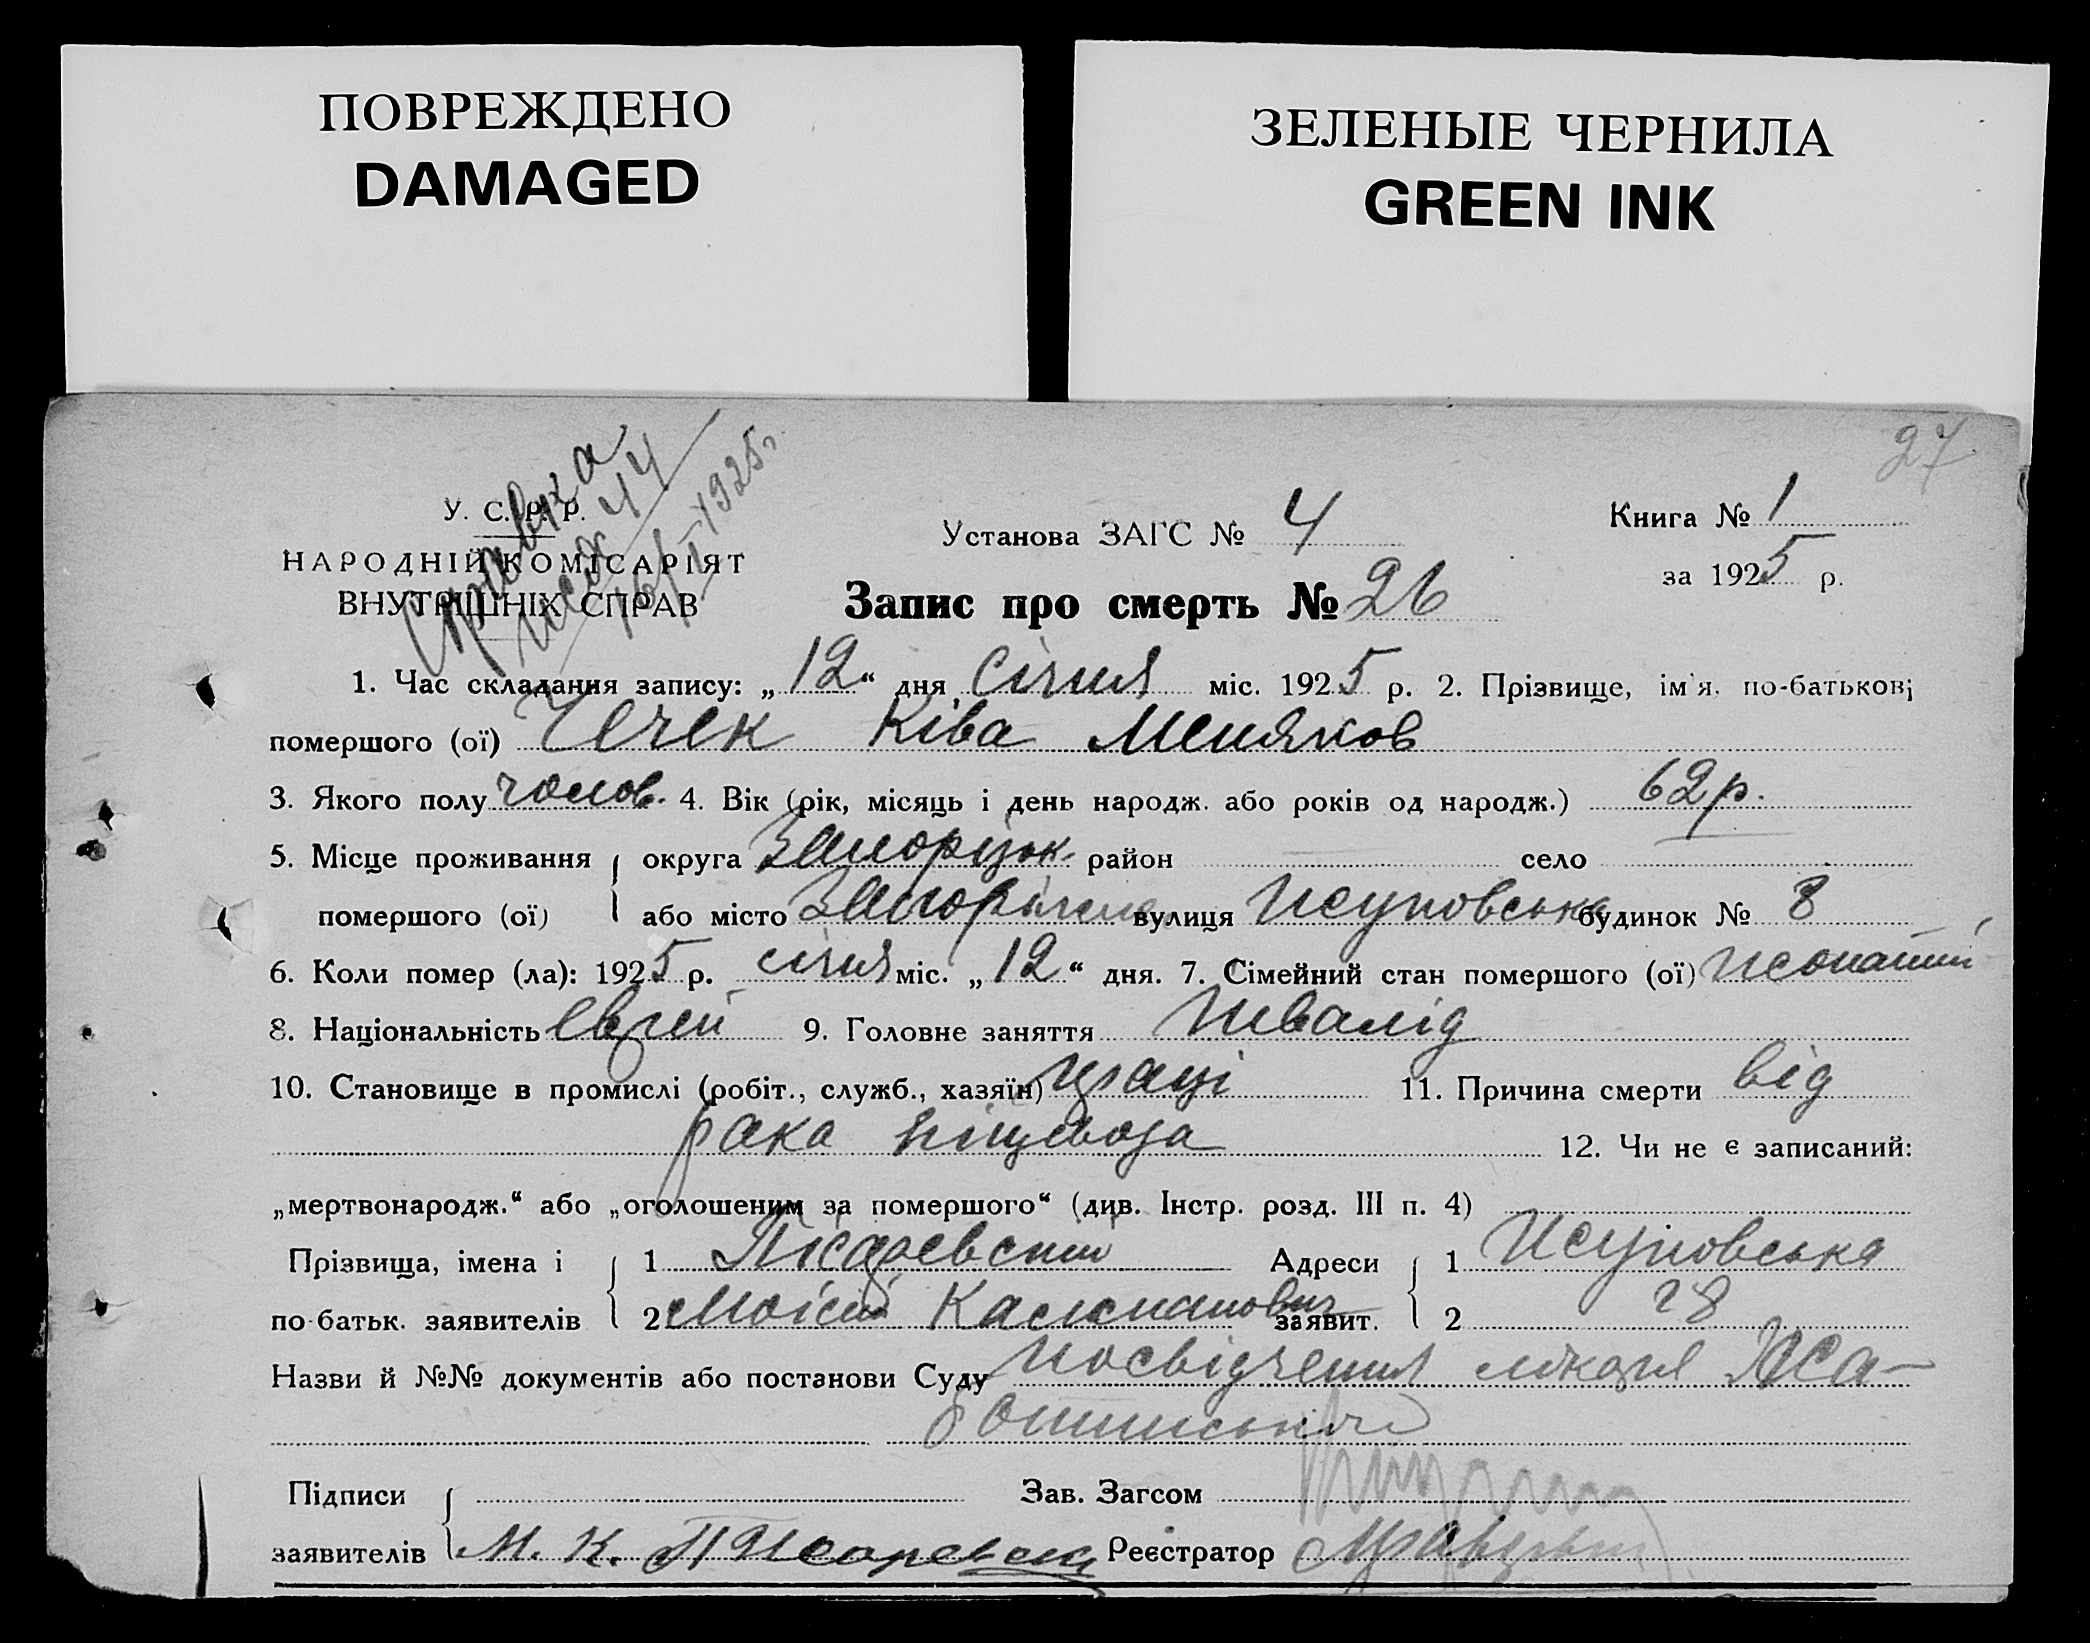 ПОВРЕЖДЕНО
DAMAGED
ЗЕЛЕНЫЕ ЧЕРНИЛА
GREEN INK
27
Справка
исх 44
16/I-1925г.
У. С. Р. Р.
НАРОДНІЙ КОМІСАРІЯТ
ВНУТРІШНІХ СПРАВ
Установа ЗАГС № 4
Книга № 1
за 1925 р.
Запис про смерть № 26
1. Час складання запису: „12“ дня січня міс. 1925 р. 2. Прізвище, ім'я, по-батькові
помершого (ої) Чечек Ківа
3. Якого полу чолов. 4. Вік (рік, місяць і день народж. або років од народж.) 62 р.
5. Місце проживання округа Запоріжж. район село
помершого (ої) або місто вулиця будинок № 8
6. Коли помер (ла): 1925 р. січня міс. „12“ дня. 7. Сімейний стан помершого (ої)
8. Національність еврей 9. Головне заняття Інвалід
10. Становище в промислі (робіт., служб., хазяїн) праці 11. Причина смерти від
рака
12. Чи не є записаний:
„мертвонародж.“ або „оголошеним за помершого“ (див. Інстр. розд. III п. 4)
Прізвища, імена і 1 Пісаревский Адреси 1
по-батьк. заявителів 2 Моісей заявит. 2
Назви й №№ документів або постанови Суду посвідчення лікаря
Підписи Зав. Загсом
заявителів М. К. Писаревский Реєстратор